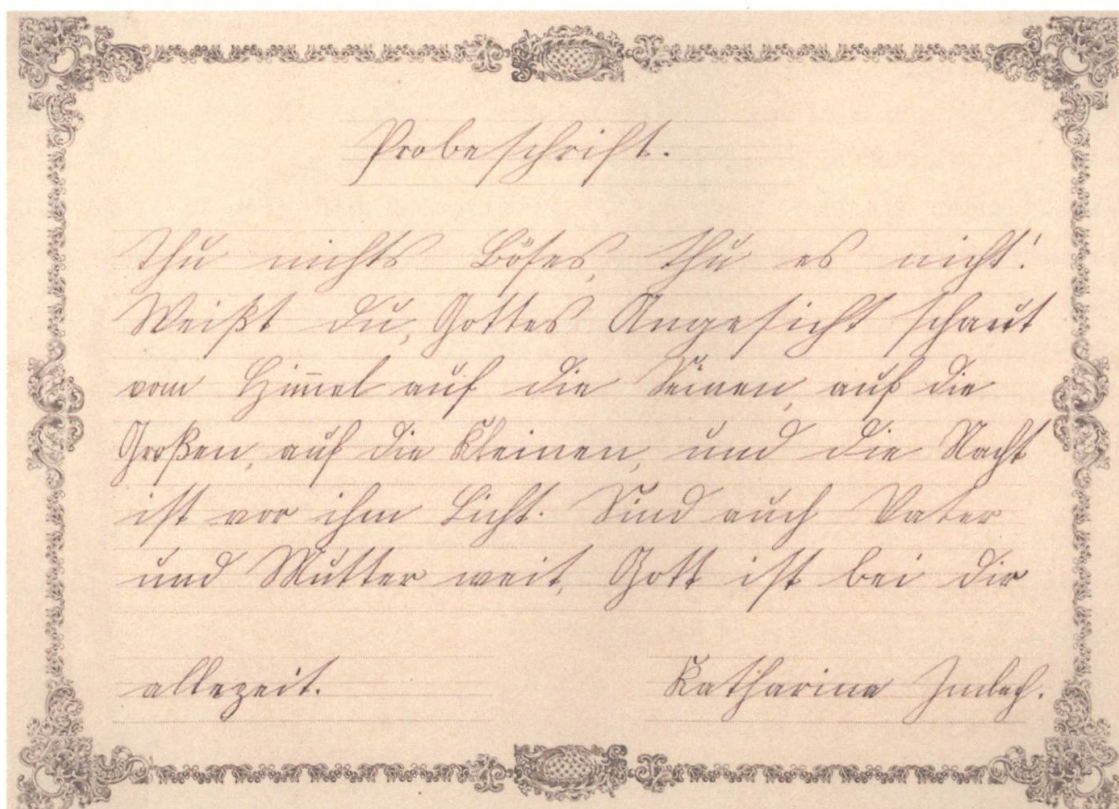 Probeschrift.
Thu nichts Böses, thu es nicht!
Weißt du, Gottes Angesicht schaut
vom Him̅el auf die Seinen, auf die
Großen, auf die Kleinen, und die Nacht
ist vor ihm Licht. Sind auch Vater
und Mutter weit, Gott ist bei dir
allezeit.
Katharina Imbach.